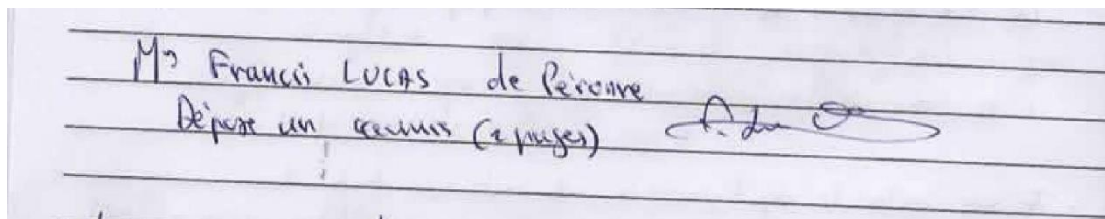 Mr Francis LUCAS de Péronne
Dépose un (2 pages)